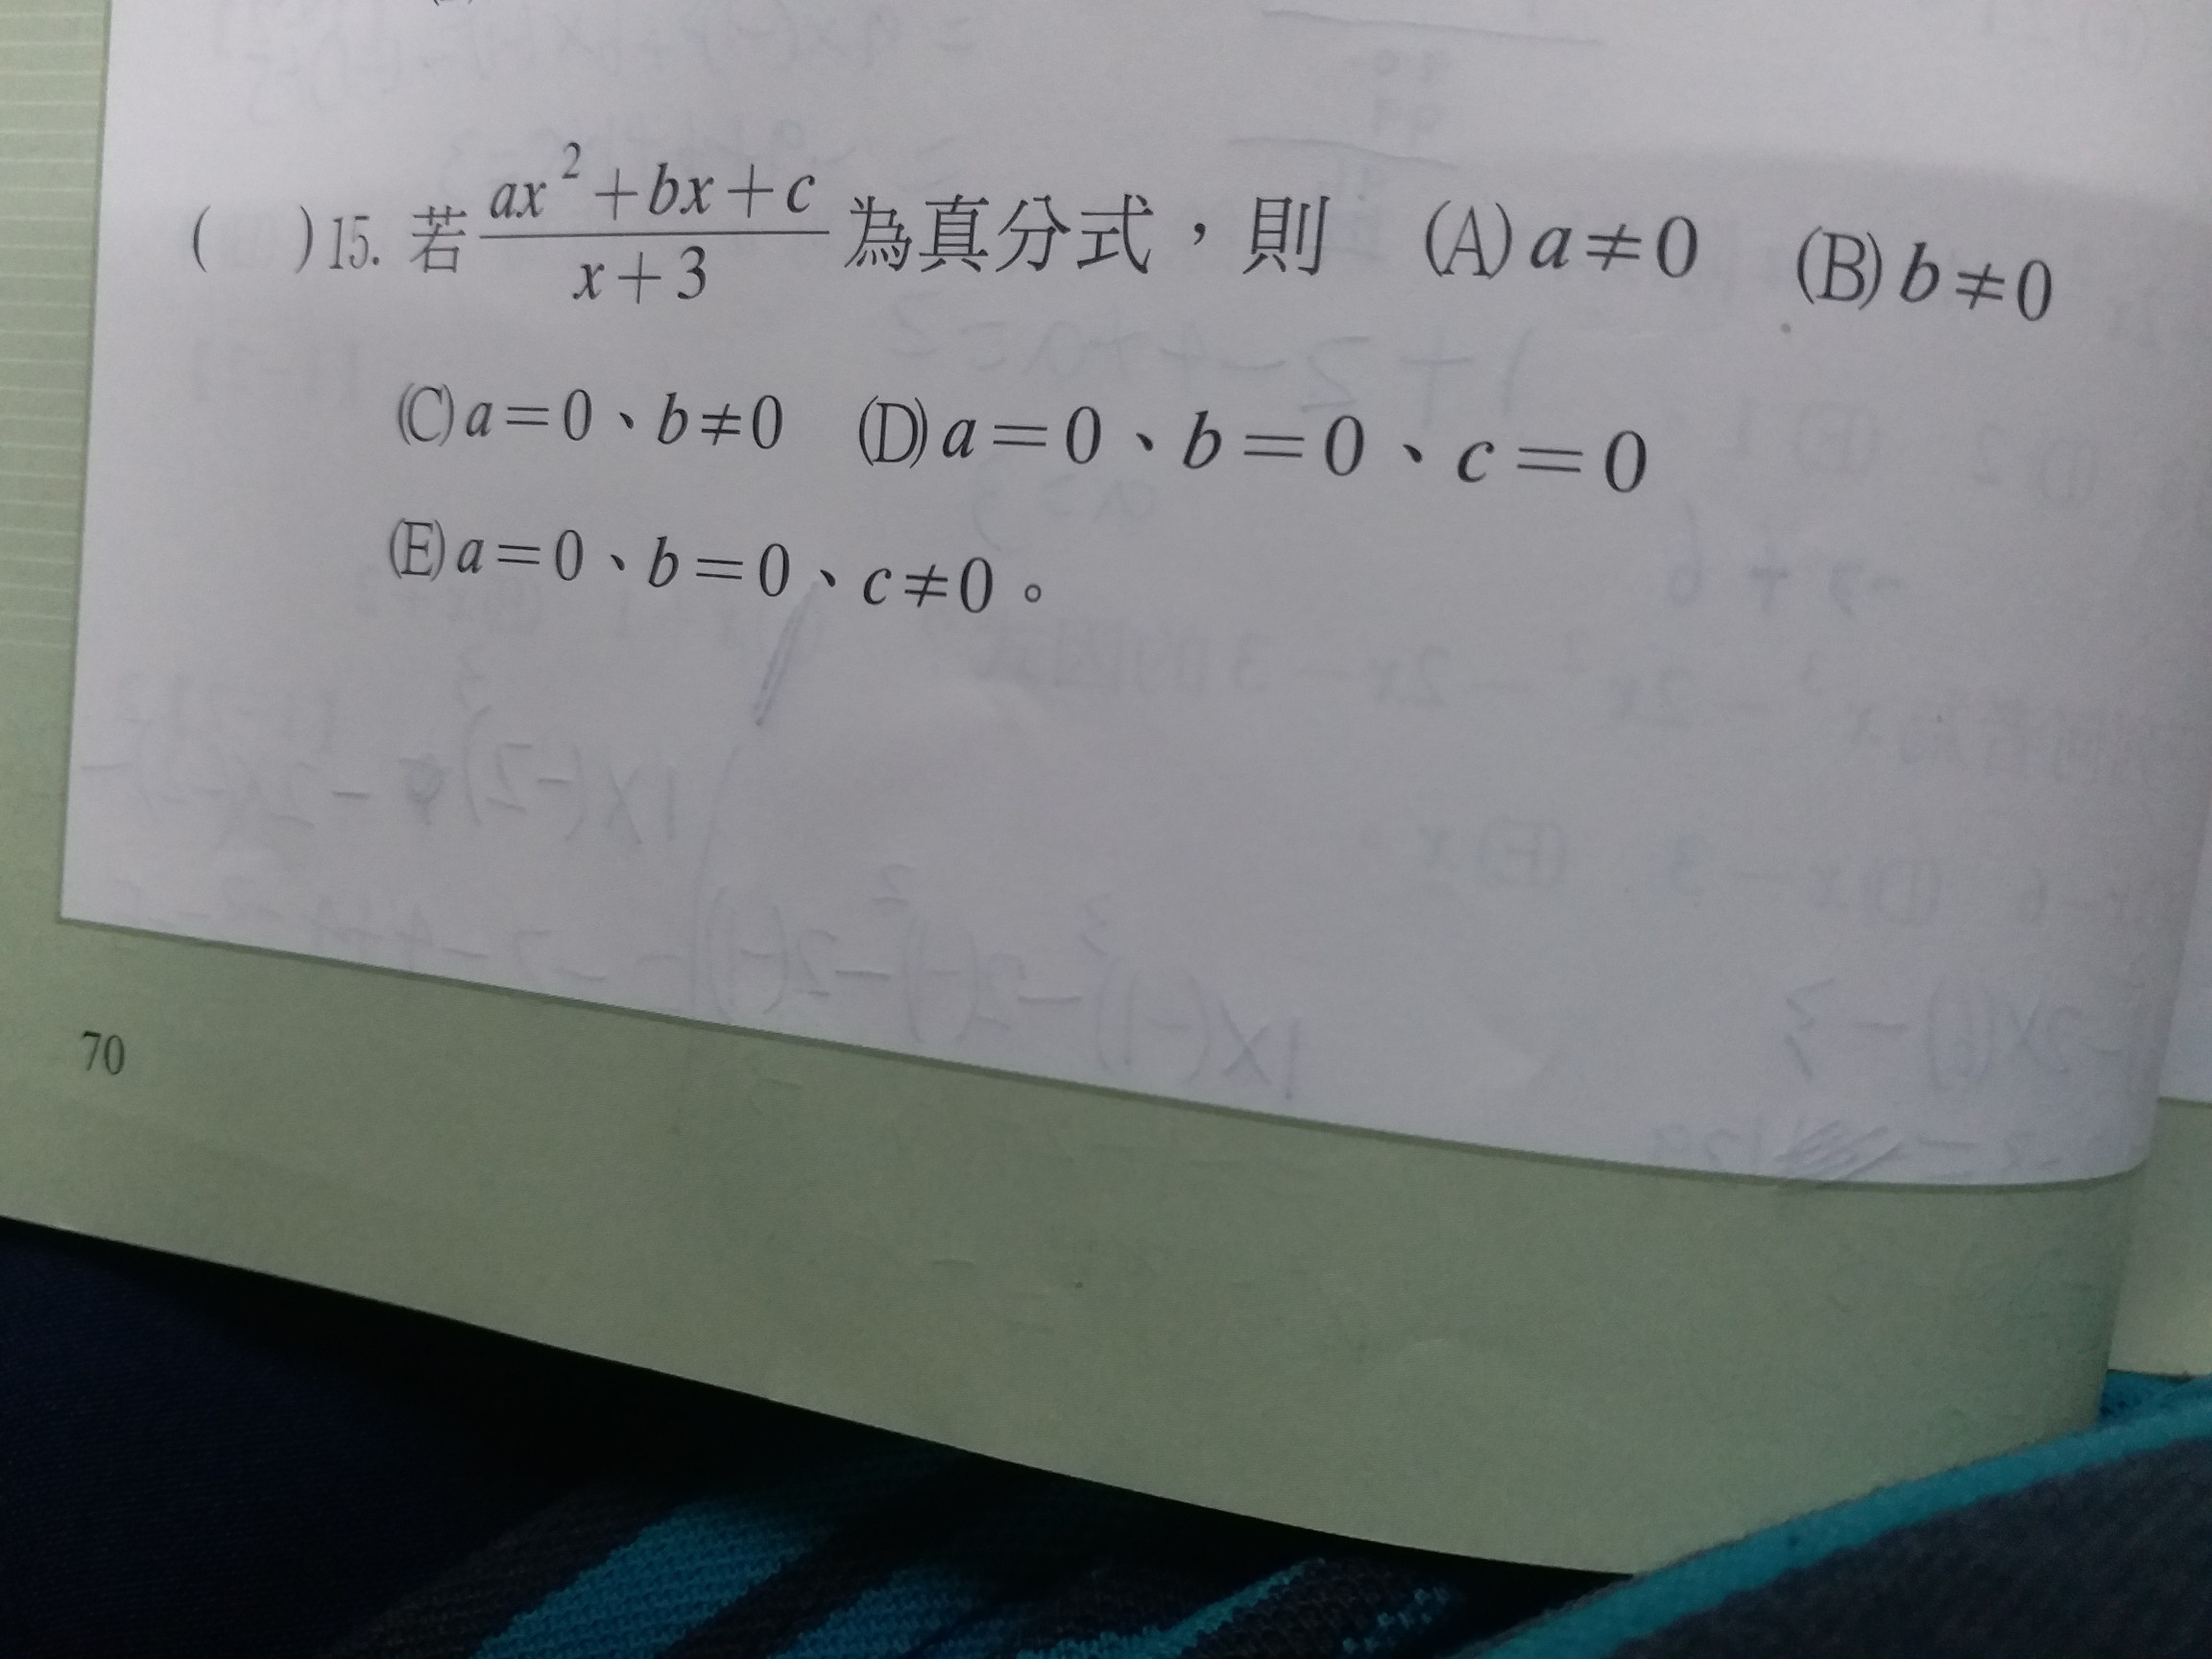 ( )15. 若 \frac{ax^2+bx+c}{x+3} 為真分式，則 (A) a≠0 (B) b≠0
(C) a=0、b≠0 (D) a=0、b=0、c=0
(E) a=0、b=0、c≠0。
70